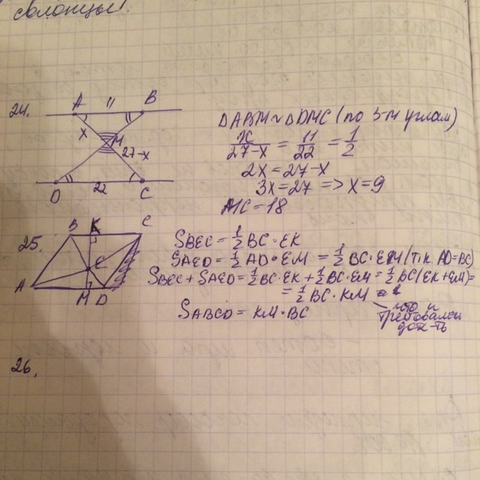 24.
A 11 B
X
M
27-x
D 22 C
ΔABM ~ ΔDMC (по 3-м углам)
x/27-x = 11/22 = 1/2
2x = 27-x
3x = 27 => x = 9
MC = 18
25.
B K C
E
A M D
SBEC = 1/2 BC · EK
SAED = 1/2 AD · EM = 1/2 BC · EM (т.к. AD=BC)
SBEC + SAED = 1/2 BC · EK + 1/2 BC · EM = 1/2 BC (EK + EM) =
= 1/2 BC · KM
что и
требовалось
док-ть
SABCD = KM · BC
26.